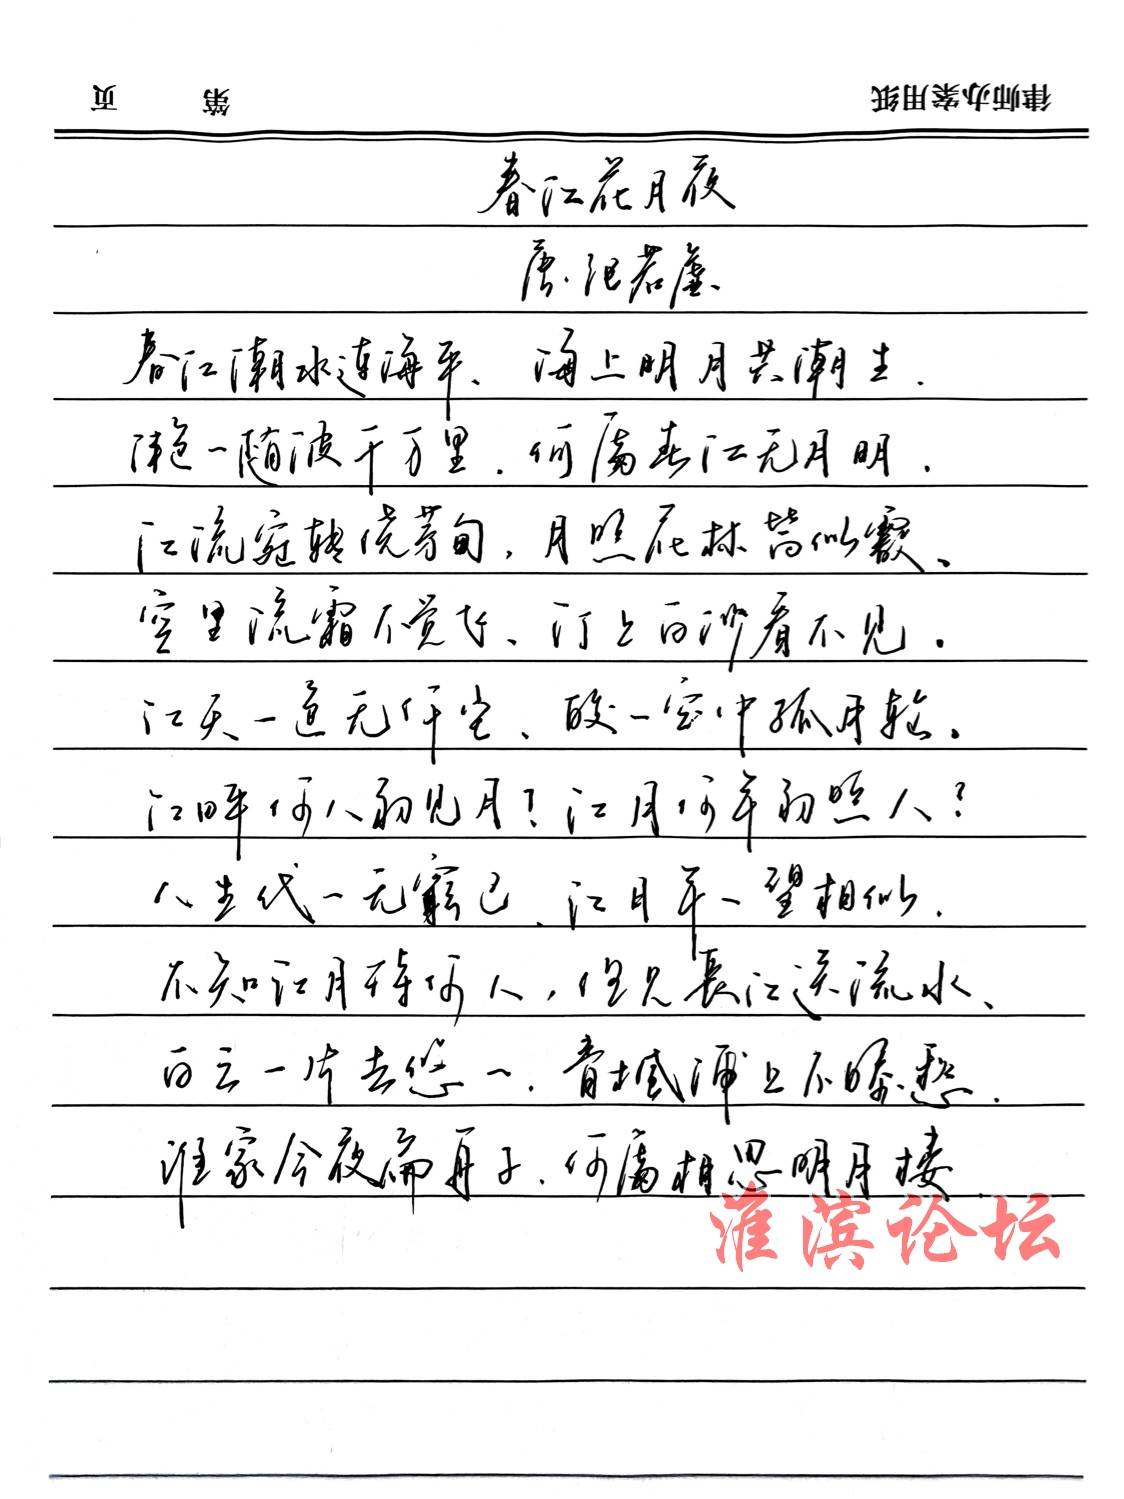 律师办案用纸 第 页
春江花月夜
唐.张若虚、
春江潮水连海平、海上明月共潮生.
滟一随波千万里.何處春江无月明.
江流宛转绕芳甸,月照花林皆似霰、
空里流霜不觉飞、汀上白沙看不见.
江天一色无纤尘、皎一空中孤月轮.
江畔何人初见月?江月何年初照人?
人生代一无窮已、江月年一望相似.
不知江月待何人,但见長江送流水、
白云一片去悠一.青枫浦上不勝愁.
谁家今夜扁舟子.何處相思明月楼.
淮滨论坛